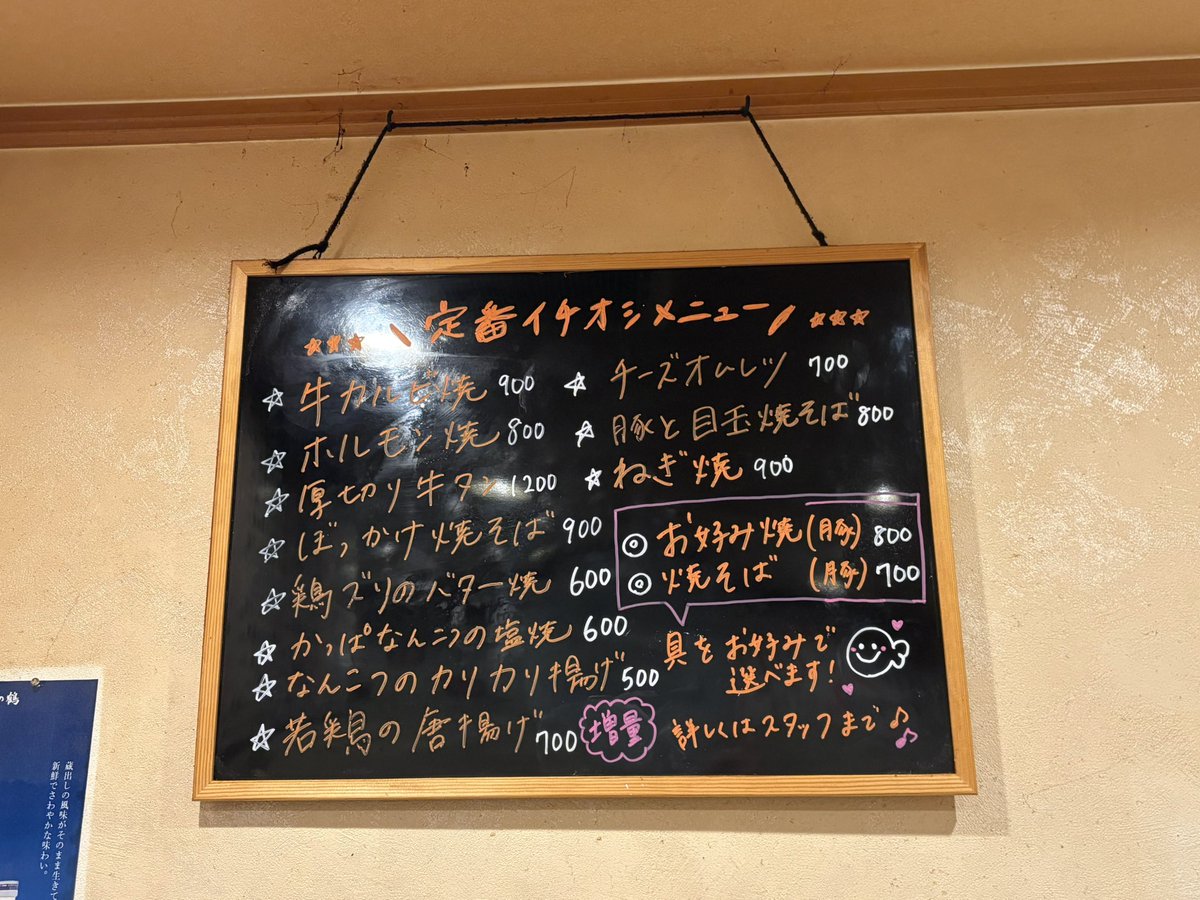 定番イチオシメニュー
☆ 牛カルビ焼 900
☆ ホルモン焼 800
☆ 厚切り牛タン 1200
☆ ぼっかけ焼そば 900
☆ 鶏ズリのバター焼 600
☆ かっぱなんこつの塩焼 600
☆ なんこつのカリカリ揚げ 500
☆ 若鶏の唐揚げ 700
増量
☆ チーズオムレツ 700
☆ 豚と目玉焼そば 800
☆ ねぎ焼 900
◎ お好み焼(豚) 800
◎ 焼そば (豚) 700
具をお好みで
選べます!
詳しくはスタッフまで♪
の鶴
蔵出しの風味がそのまま生きて
新鮮でさわやかな味わい。